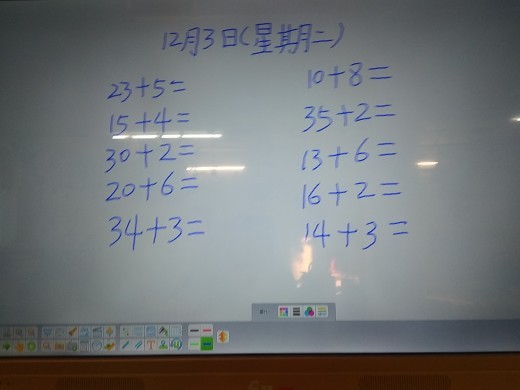 12月3日(星期二)
23+5= 10+8=
15+4= 35+2=
30+2= 13+6=
20+6= 16+2=
34+3= 14+3=